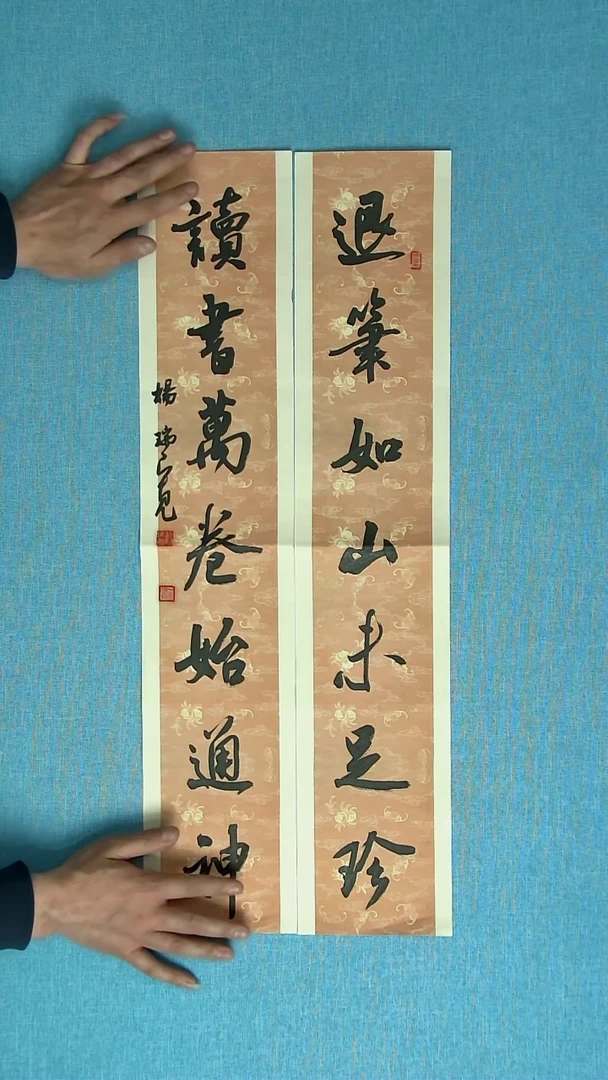 退筆如山未足珍
讀書萬卷始通神
楊瑞